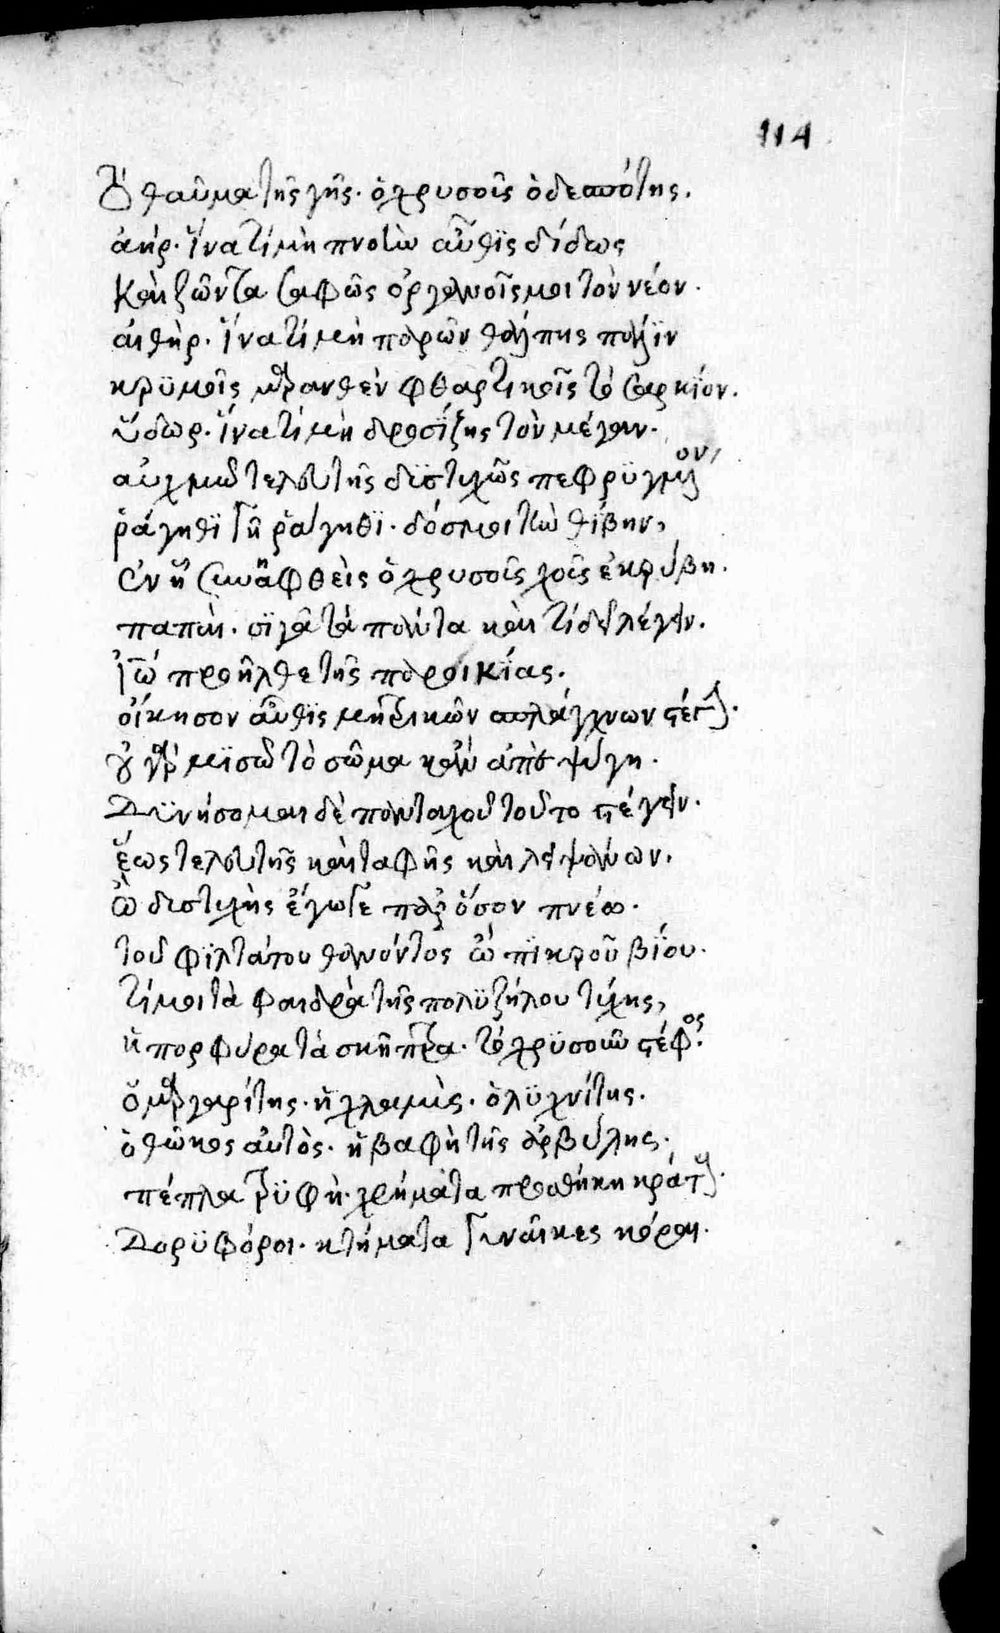 114
Τὸ θαῦμα τῆς γῆς· ὁ χρυσοῦς ὁ δεσπότης.
ἀήρ· ἵνα τί μὴ πνοὴν αὖθϊς δίδως
Καὶ ζῶντα σαφῶς ὀργανοῖς μοι τὸν νέον.
αἰθήρ· ἵνα τί μὴ παρὼν θάλπης πάλϊν
κρϋμοῖς μαρανθὲν φθαρτικοῖς τὸ σαρκίον.
ὕδωρ· ἵνα τί μὴ δροσΐζης τὸν μέγαν.
αὐχμῶ τελευτῆς δϋστυχῶς πεφρϋγμένον,
ῥάγηθϊ γῆ ῥάγηθϊ· δός μοι τὴν θίβην,
ἐν ἧ συναφθεὶς ὁ χρυσοῦς χοῦς ἐκρύβη.
παπαί· σϊγᾶ τὰ πάντα καὶ τί δεῖ λέγειν.
ψυχὴ προῆλθε τῆς παροικΐας.
οἴκησον αὖθϊς μητρικῶν σπλάγχνων στέγην.
οὐ γὰρ μϊσῶ τὸ σῶμα κἂν ἄπνους ψύγη.
Δϋνήσομαι δὲ πανταχοῦ τοῦτο στέγειν.
ἕως τελευτῆς καὶ ταφῆς καὶ λειψάνων.
ὢ δυστυχὴς ἔγωγε παρόσον πνέω.
τοῦ φϊλτάτου θανόντος ὢ πϊκροῦ βΐου.
τί μοι τὰ φαιδρὰ τῆς πολϋζήλου τύχης,
ἡ πορφύρα τὰ σκῆπτρα· τὸ χρϋσοῦν στέφος.
ὁ μαργαρίτης· ἡ χλαμὺς· ὁ λϋχνίτης.
ὁ θῶκος αὐτὸς· ἡ βαφὴ τῆς ἀρβύλης.
πέπλα τρϋφὴ· χρήματα προσθήκη κράτους.
Δορϋφόροι· κτήματα γυναῖκες κόραι.